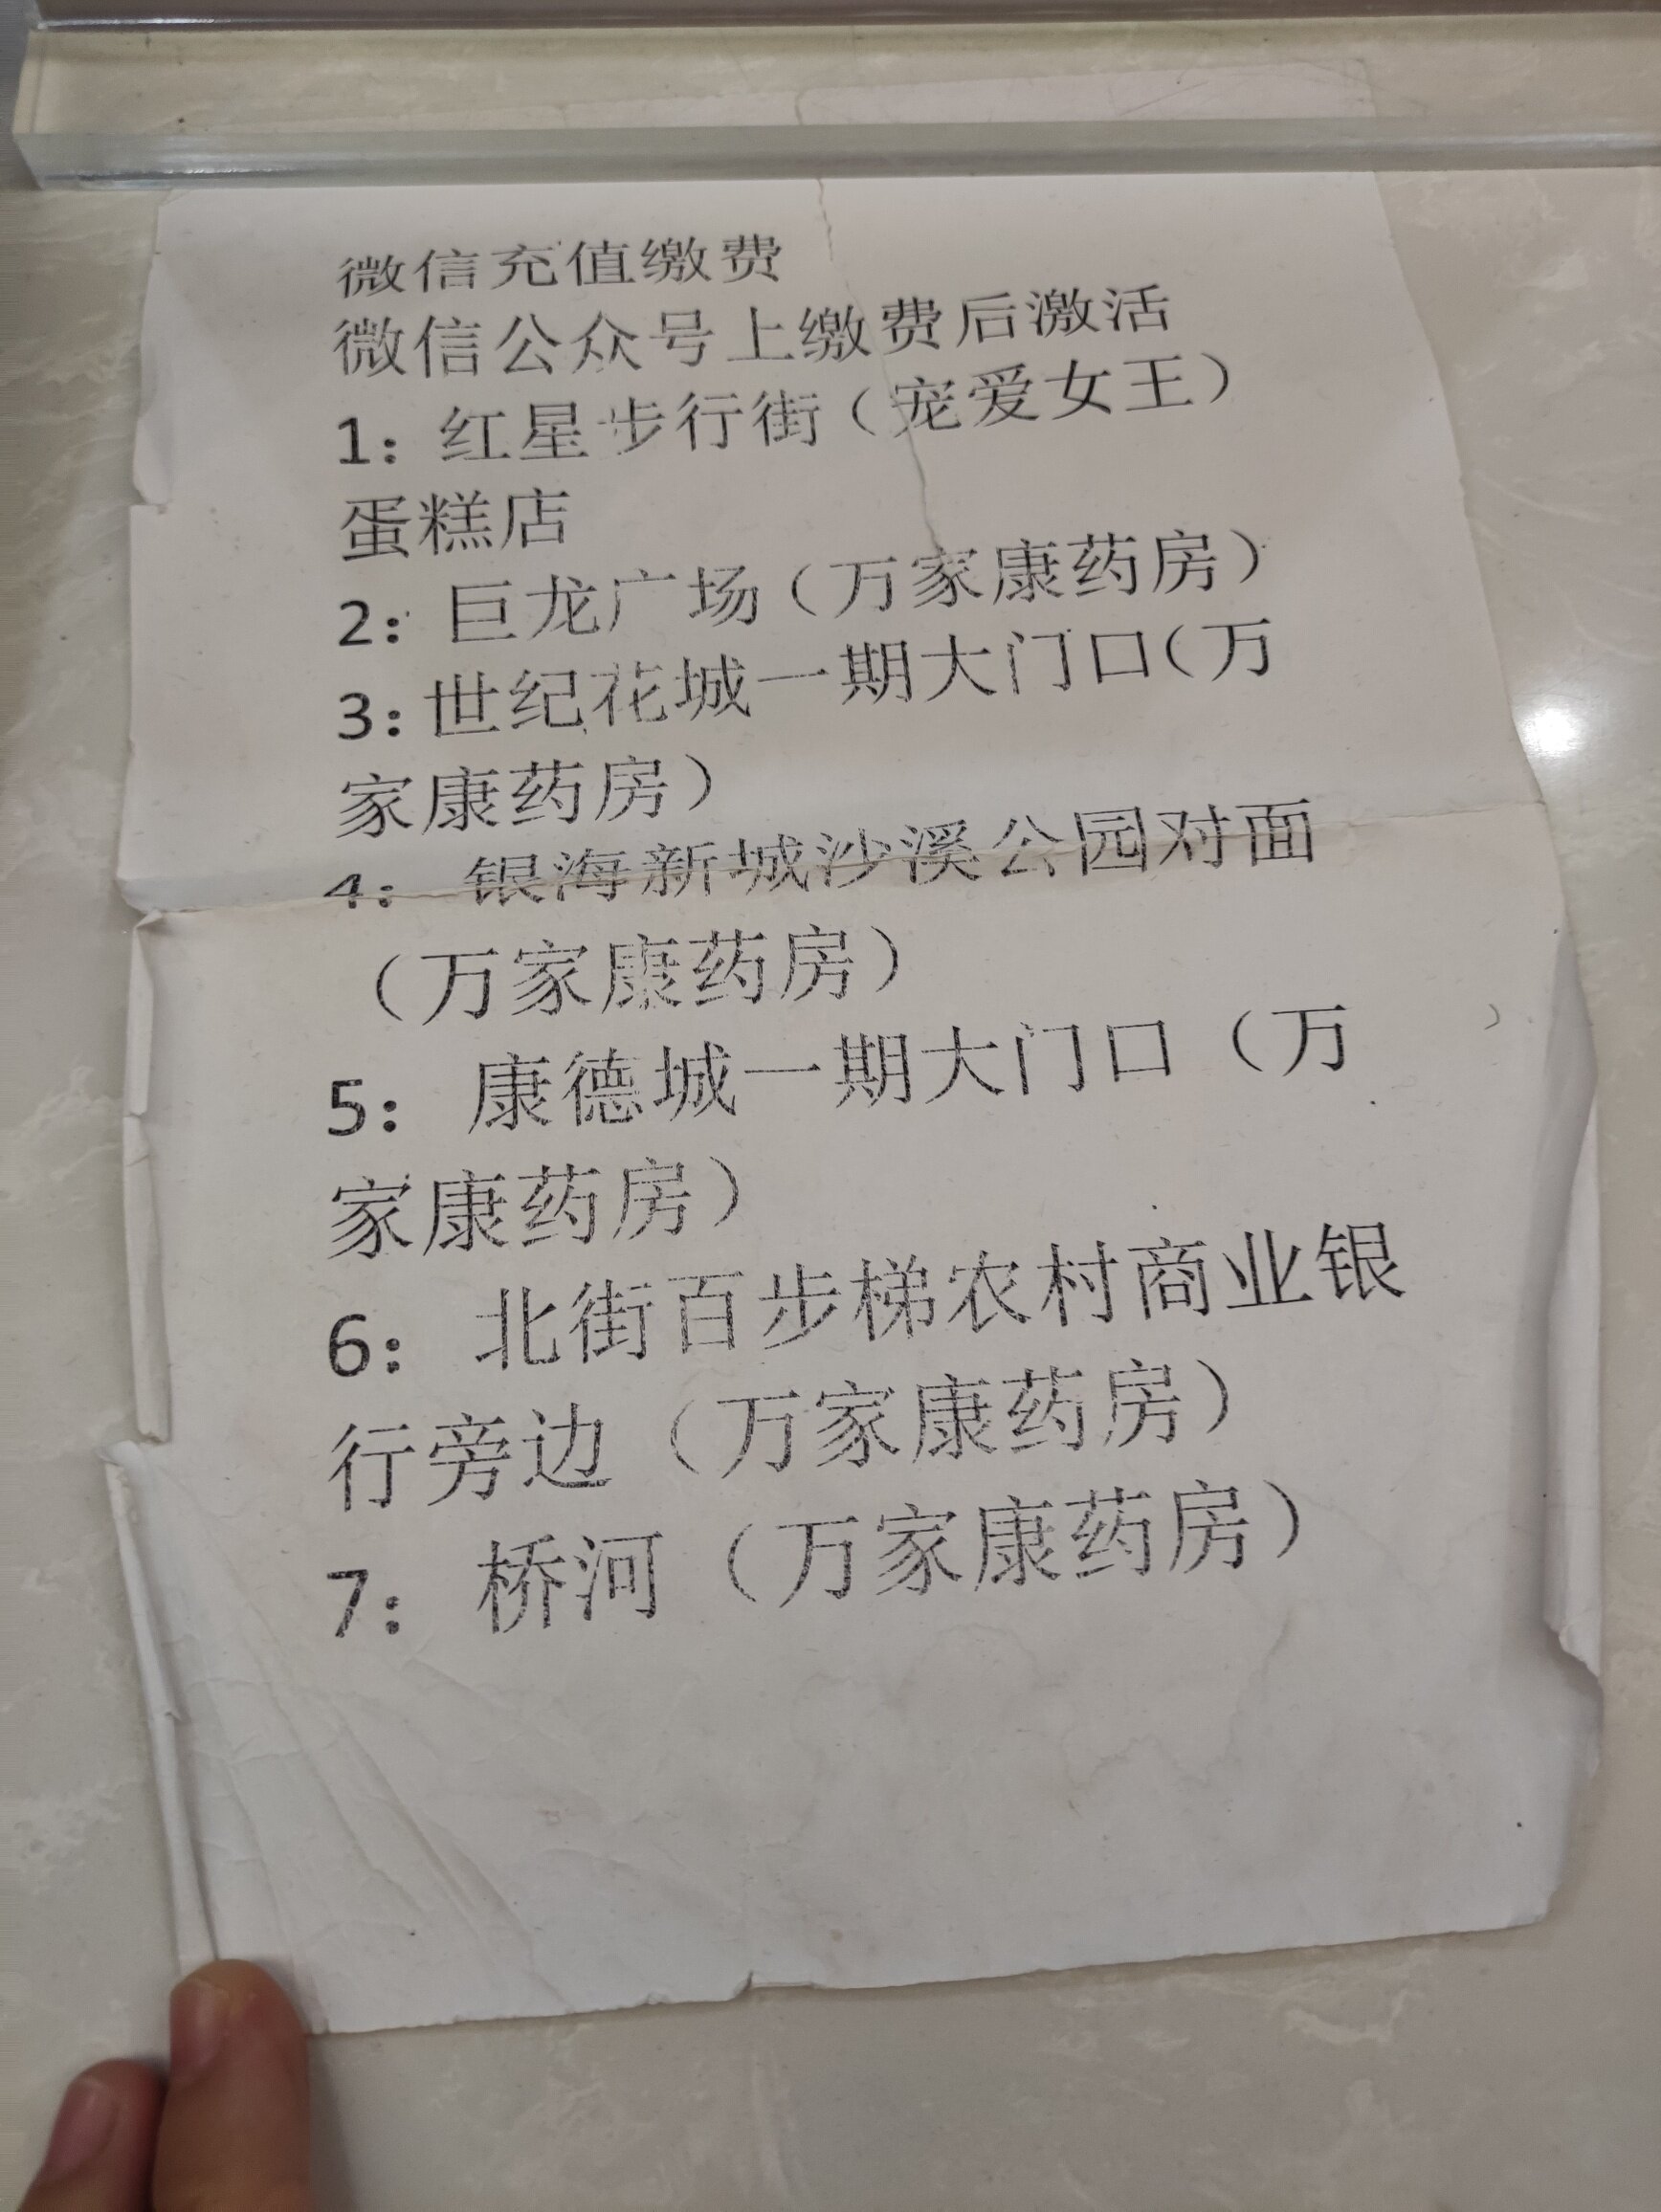 微信充值缴费
微信公众号上缴费后激活
1：红星步行街（宠爱女王）
蛋糕店
2：巨龙广场（万家康药房）
3：世纪花城一期大门口（万
家康药房）
4： 银海新城沙溪公园对面
（万家康药房）
5： 康德城一期大门口（万
家康药房）
6： 北街百步梯农村商业银
行旁边（万家康药房）
7： 桥河（万家康药房）